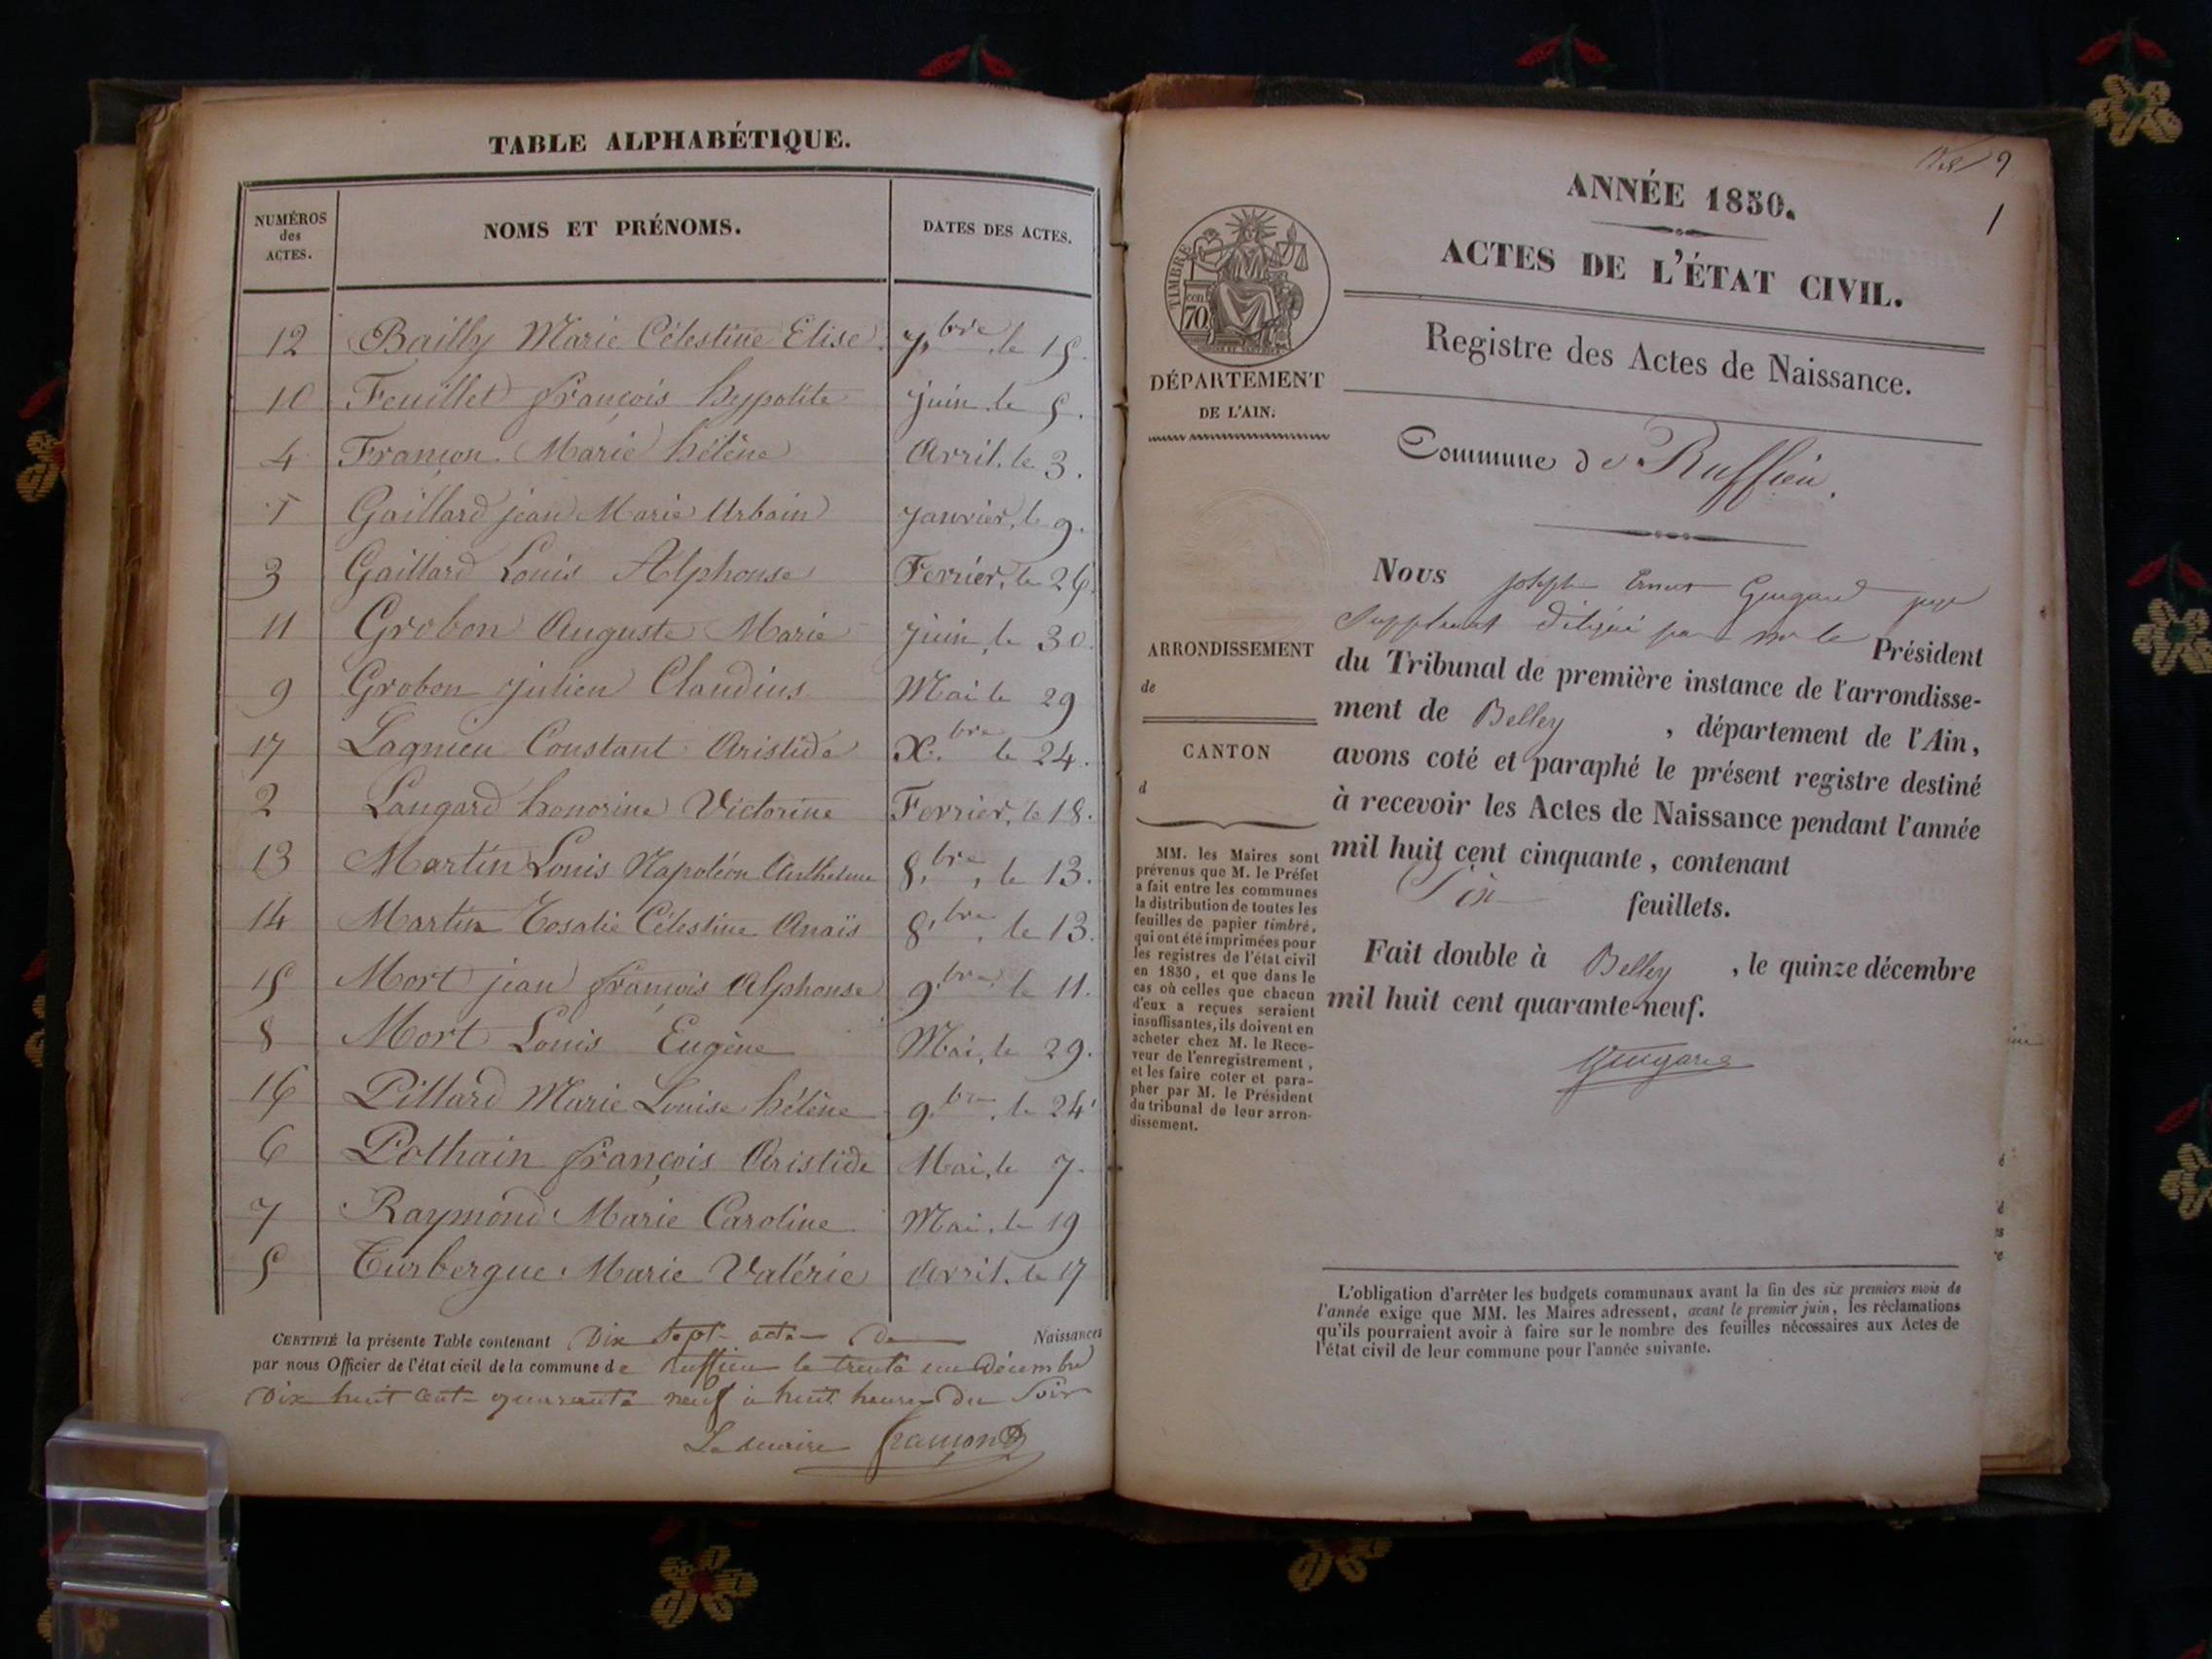 TABLE ALPHABÉTIQUE.
NUMÉROS
des
ACTES.
NOMS ET PRÉNOMS.
DATES DES ACTES.
12 Bailly Marie Célestine Elise 7.bre le 15.
10 Feuillet françois hypolite juin. le 5.
4 Françon. Marie hélène Avril. le 3.
1 Gaillard jean Marie Urbain janvier, le 9.
3 Gaillard Louis Alphonse Fevrier, le 26
11 Grobon Auguste Marie juin, le 30.
9 Grobon julien Claudius Mai le 29
17 Lagnieu Constant Aristide X.bre le 24.
2 Laugard honorine Victorine Fevrier, le 18.
13 Martin Louis Napoléon Anthelme 8.bre, le 13.
14 Martin Rosalie Célestine Anaïs 8.bre, le 13.
15 Mort jean françois Alphonse 9.bre le 11.
8 Mort Louis Eugène Mai, le 29.
16 Pillard Marie Louise hélène 9.bre, le 24
6 Pothain françois Aristide Mai, le 7.
7 Raymond Marie Caroline Mai. le 19
5 Turbergue Marie Valérie Avril. le 17
CERTIFIÉ la présente Table contenant Dix Sept actes de Naissances
par nous Officier de l'état civil de la commune de Ruffieu le trente un Décembre
Dix huit Cent quarante neuf à huit heures Du Soir
Le maire
9
1
ANNÉE 1850.
ACTES DE L'ÉTAT CIVIL.
Registre des Actes de Naissance.
Commune de Ruffieu.
TIMBRE
70
DÉPARTEMENT
DE L'AIN.
ARRONDISSEMENT
de
CANTON
d
MM. les Maires sont
prévenus que M. le Préfet
a fait entre les communes
la distribution de toutes les
feuilles de papier timbré,
qui ont été imprimées pour
les registres de l'état civil
en 1850, et que dans le
cas où celles que chacun
d'eux a reçues seraient
insuffisantes, ils doivent en
acheter chez M. le Rece-
veur de l'enregistrement,
et les faire coter et para-
pher par M. le Président
du tribunal de leur arron-
dissement.
Nous Joseph Ernest juge
Suppléant délégué par mr le Président
du Tribunal de première instance de l'arrondisse-
ment de Belley , département de l'Ain,
avons coté et paraphé le présent registre destiné
à recevoir les Actes de Naissance pendant l'année
mil huit cent cinquante, contenant
feuillets.
Fait double à Belley , le quinze décembre
mil huit cent quarante-neuf.
L'obligation d'arrêter les budgets communaux avant la fin des six premiers mois de
l'année exige que MM. les Maires adressent, avant le premier juin, les réclamations
qu'ils pourraient avoir à faire sur le nombre des feuilles nécessaires aux Actes de
l'état civil de leur commune pour l'année suivante.